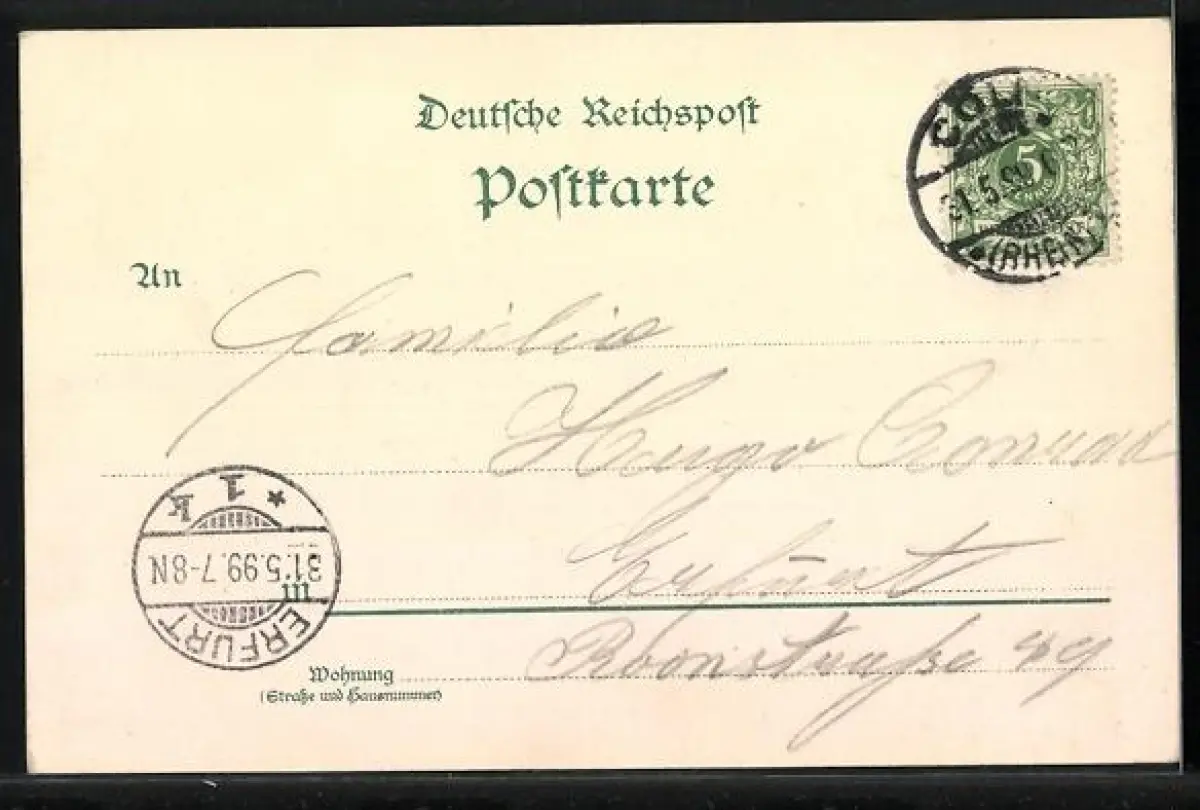 Deutsche Reichspost
Postkarte
CÖLN
5
31.5.99
(RHEIN)
An
Familie
Hugo Conrad
Erfurt
in
Roonstraße
Wohnung
(Straße und Hausnummer)
ERFURT
31.5.99.7-8N
* 1 k